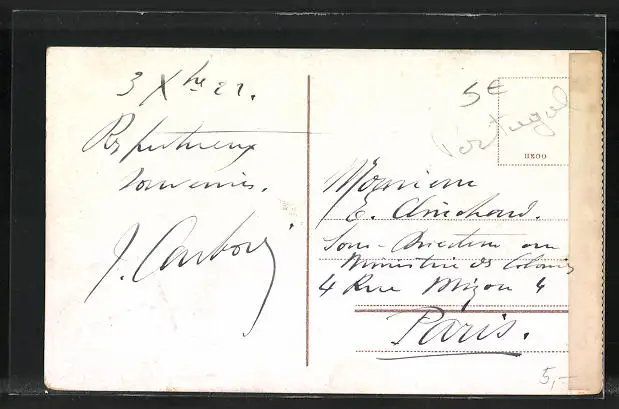 3 Xbre 21.
Respectueux
souvenirs.
J. Carbou
5€
Portugal
HZOO
Monsieur
E.
Sous-Directeur au
Ministère des Colonies
4 Rue Mizon 4
Paris.
5,-